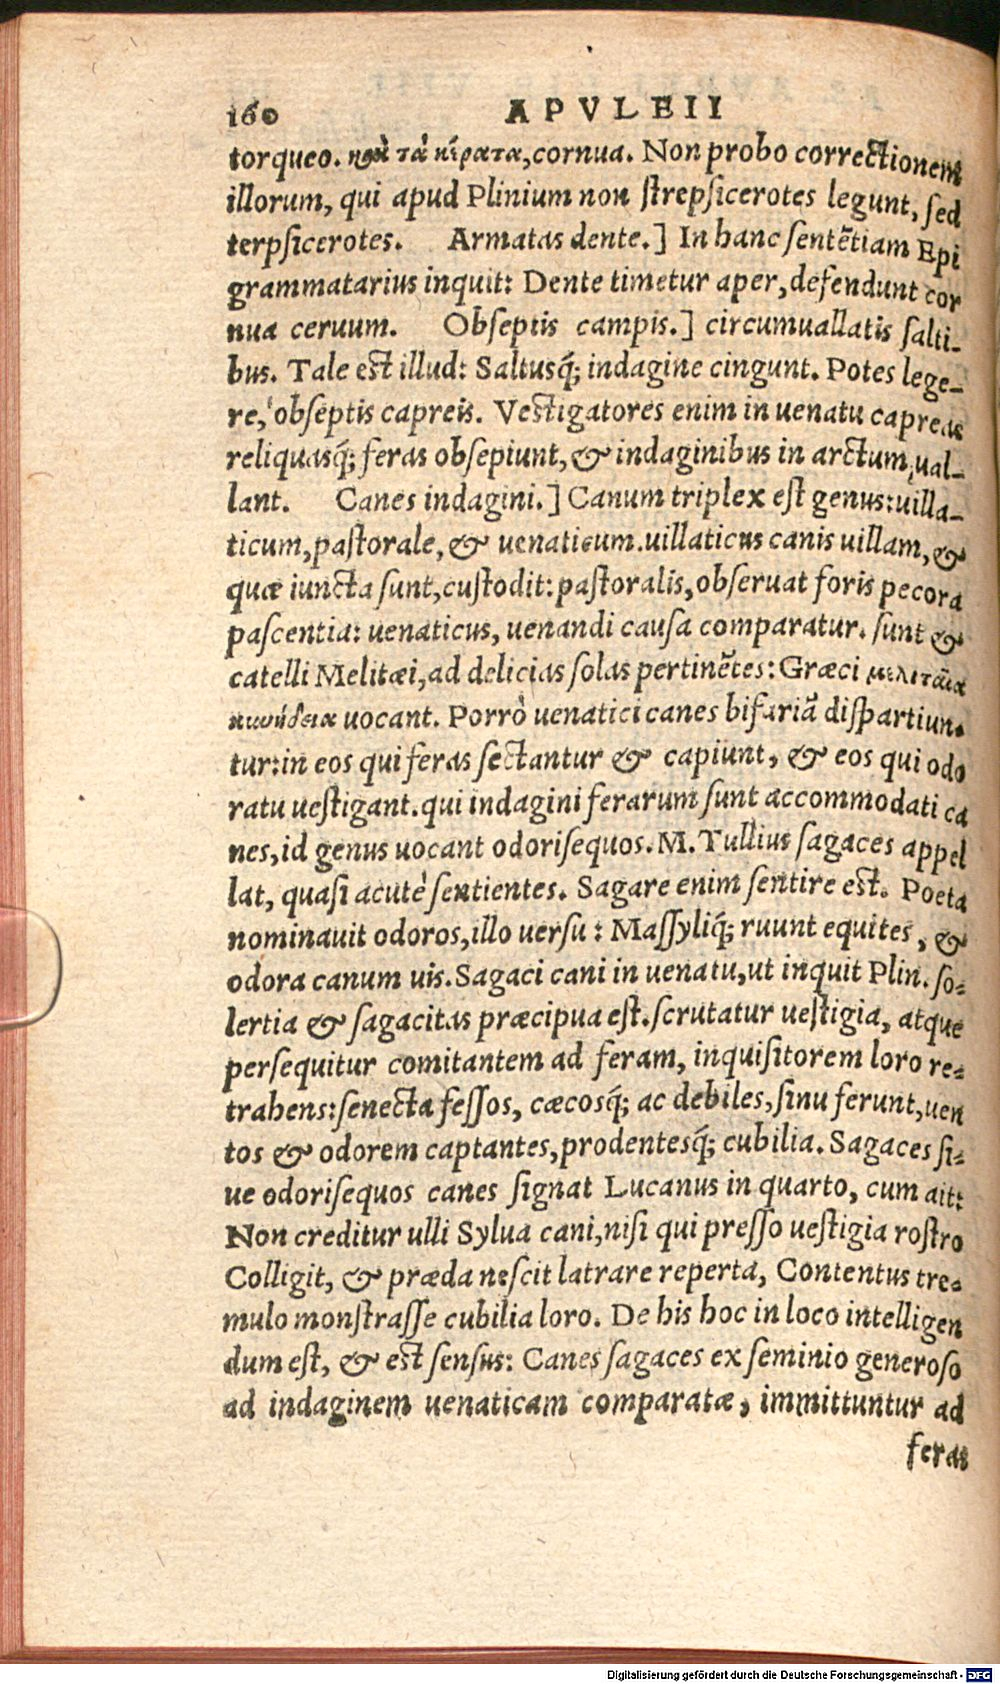 160 APVLEII
torqueo. καὶ τὰ κέρατα, cornua. Non probo correctionem
illorum, qui apud Plinium non strepsicerotes legunt, sed
terpsicerotes. Armatas dente.] In hanc sentẽtiam Epi
grammatarius inquit: Dente timetur aper, defendunt cor
nua ceruum. Obseptis campis.] circumuallatis salti-
bus. Tale est illud: Saltusq́; indagine cingunt. Potes lege-
re, obseptis capreis. Vestigatores enim in uenatu capreas
reliquasq́; feras obsepiunt, & indaginibus in arctum, ual-
lant. Canes indagini.] Canum triplex est genus: uilla-
ticum, pastorale, & uenaticum. uillaticus canis uillam, &
quæ iuncta sunt, custodit: pastoralis, obseruat foris pecora
pascentia: uenaticus, uenandi causa comparatur. sunt &
catelli Melitæi, ad delicias solas pertinẽtes: Græci μελιταῖα
κυνήδεια uocant. Porrò uenatici canes bifariã dispartiun-
tur: in eos qui feras sectantur & capiunt, & eos qui odo
ratu uestigant. qui indagini ferarum sunt accommodati ca
nes, id genus uocant odorisequos. M. Tullius sagaces appel
lat, quasi acutè sentientes. Sagare enim sentire est. Poeta
nominauit odoros, illo uersu: Massyliq́; ruunt equites, &
odora canum uis. Sagaci cani in uenatu, ut inquit Plin. so-
lertia & sagacitas præcipua est. scrutatur uestigia, atque
persequitur comitantem ad feram, inquisitorem loro re-
trahens: senecta fessos, cæcosq́; ac debiles, sinu ferunt, uen
tos & odorem captantes, prodentesq́; cubilia. Sagaces si-
ue odorisequos canes signat Lucanus in quarto, cum ait:
Non creditur ulli Sylua cani, nisi qui presso uestigia rostro
Colligit, & præda nescit latrare reperta, Contentus tre-
mulo monstrasse cubilia loro. De his hoc in loco intelligen
dum est, & est sensus: Canes sagaces ex seminio generoso
ad indaginem uenaticam comparatæ, immittuntur ad
feras
Digitalisierung gefördert durch die Deutsche Forschungsgemeinschaft - DFG